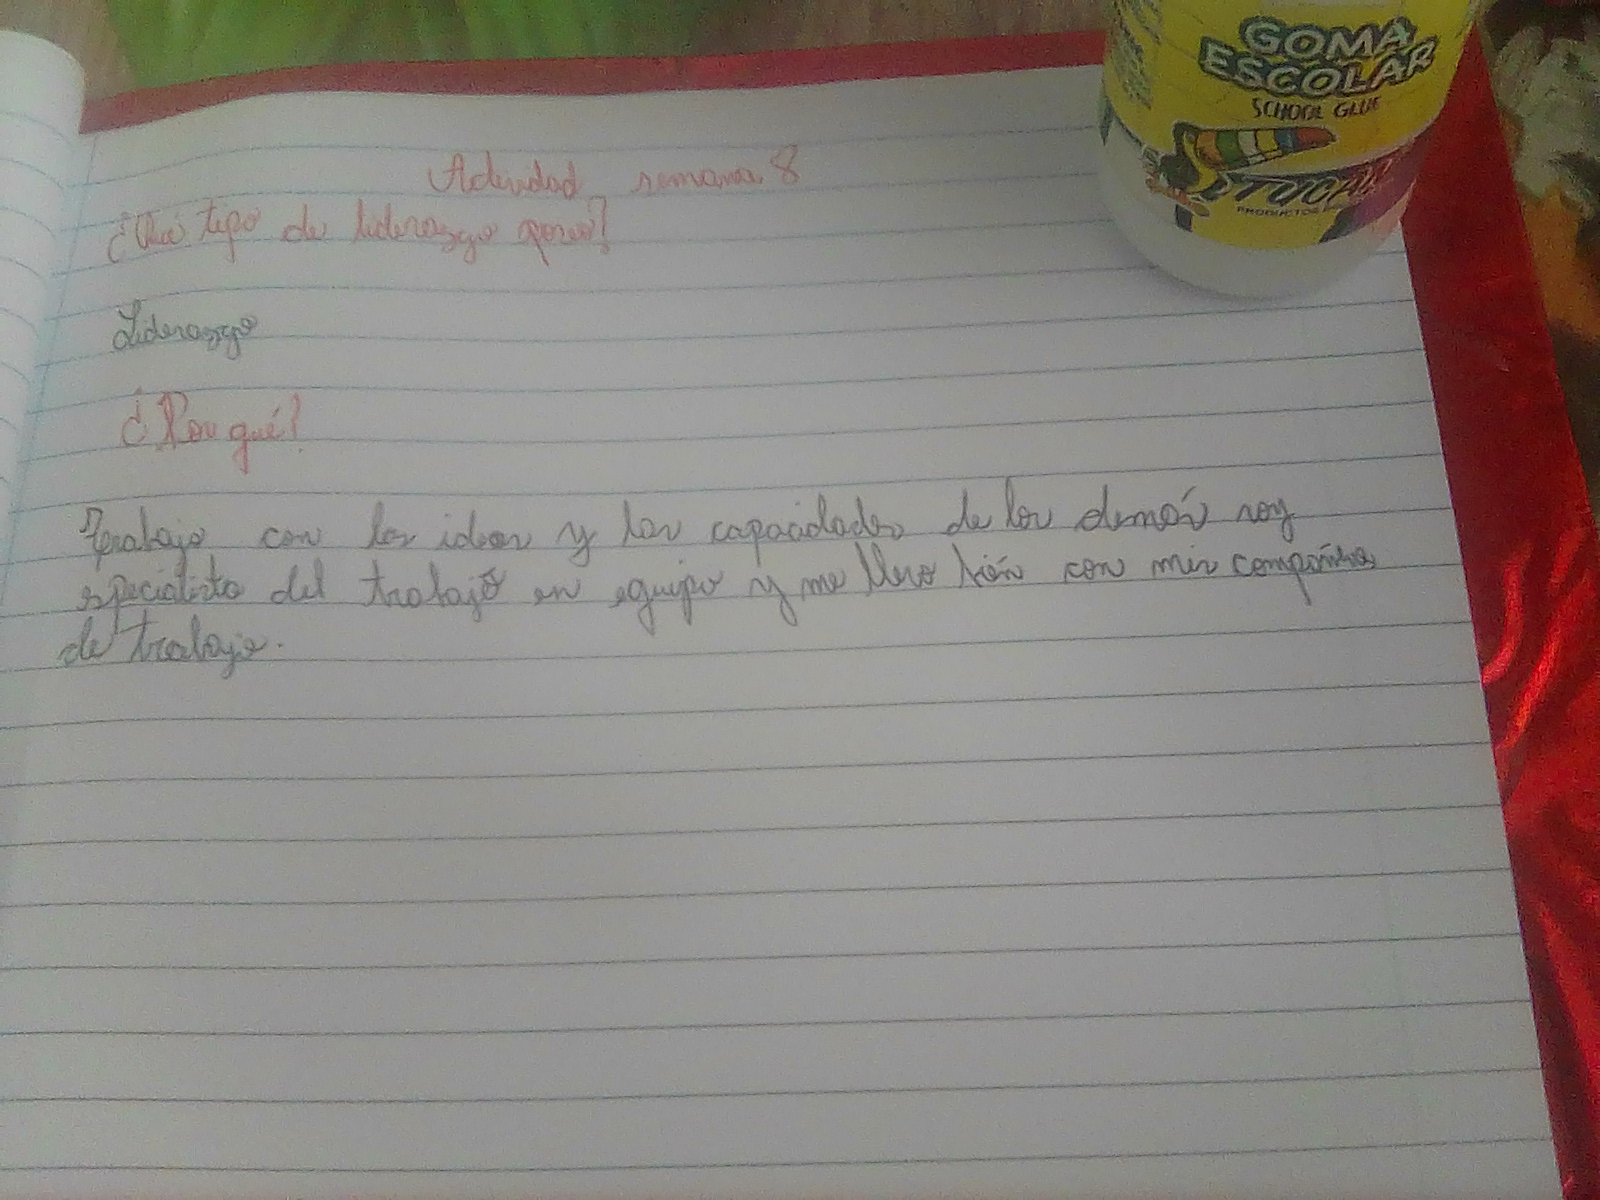 GOMA
ESCOLAR
SCHOOL GLUE
TUCAN
Actividad semana 8
¿Qué tipo de liderazgo posees?
Liderazgo
¿Por qué?
Trabajo con las ideas y las capacidades de los demás soy
especialista del trabajo en equipo y me llevo bién con mis compañeros
de trabajo.